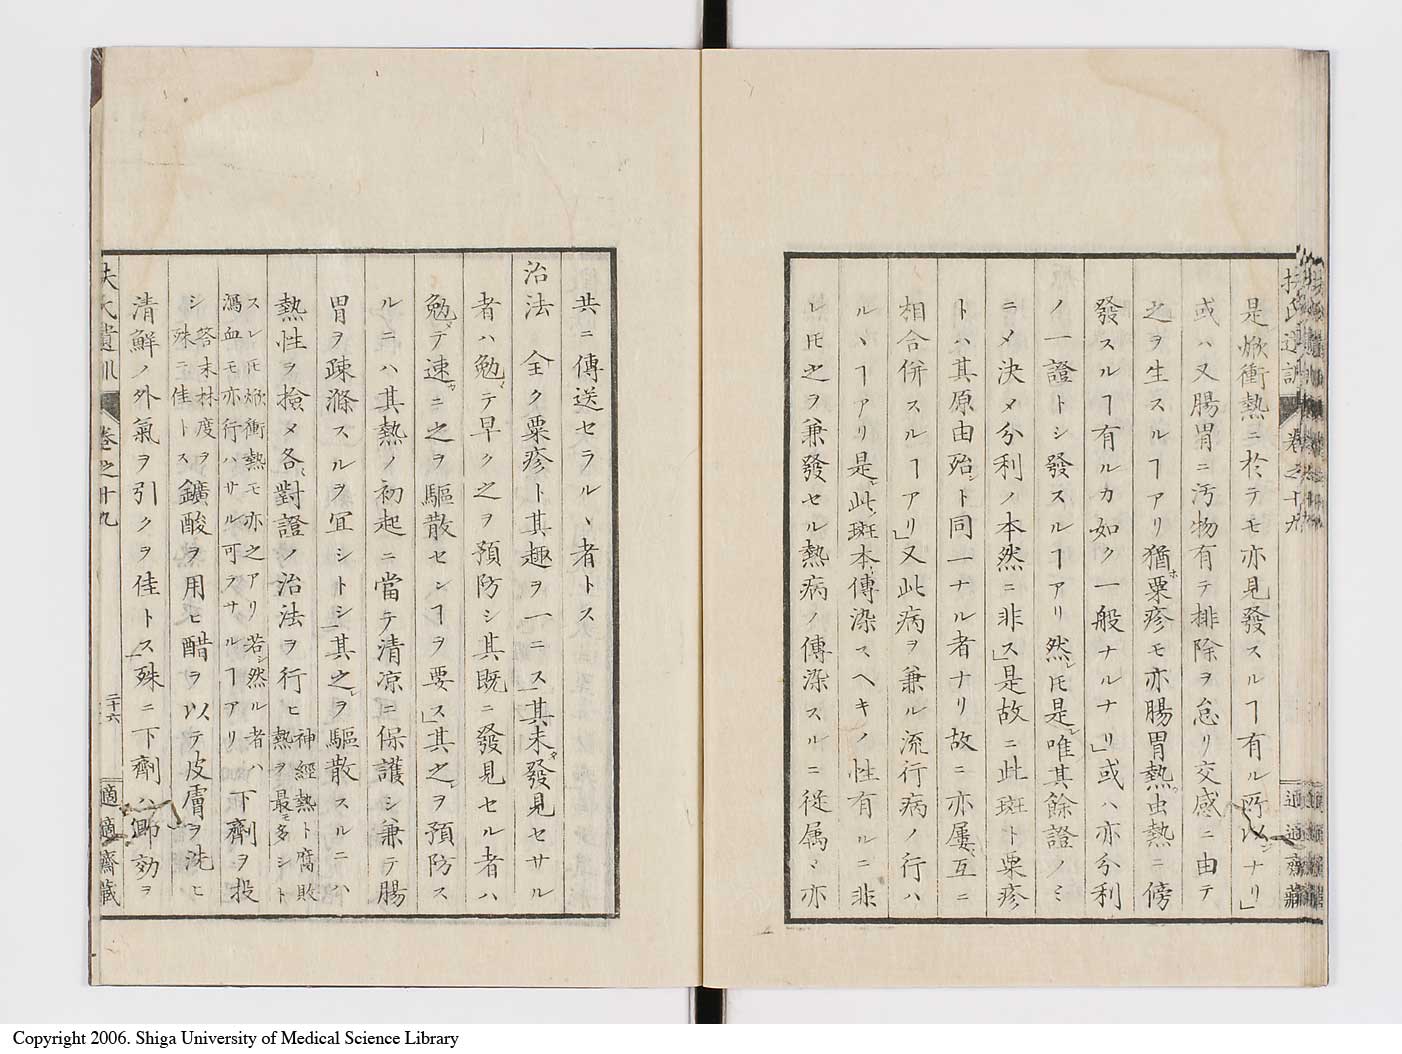 是焮衝熱ニ於テモ亦見發スルヿ有ル所以ナリ」
或ハ又腸胃ニ汚物有テ排除ヲ怠リ交感ニ由テ
之ヲ生スルヿアリ猶粟疹モ亦腸胃熱虫熱ニ傍
發スルヿ有ルカ如ク一般ナルナリ」或ハ亦分利
ノ一證トシ發スルヿアリ然レ𪜈是レ唯其餘證ノミ
ニメ決メ分利ノ本然ニ非ス」是故ニ此斑ト粟疹
トハ其原由殆ント同一ナル者ナリ故ニ亦屢〻互ニ
相合併スルヿアリ」又此病ヲ兼ル流行病ノ行ハ
ルヽヿアリ是レ此斑本ト傳染スヘキノ性有ルニ非
レ𪜈之ヲ兼發セル熱病ノ傳染スルニ從属〆亦
扶氏遺訓 卷之十九 適適齋藏
共ニ傳送セラルヽ者トス
治法 全ク粟疹ト其趣ヲ一ニス」其未タ發見セサル
者ハ勉メテ早ク之ヲ預防シ其既ニ發見セル者ハ
勉メテ速カニ之ヲ驅散センヿヲ要ス」其之レヲ預防ス
ルニハ其熱ノ初起ニ當テ清凉ニ保護シ兼テ腸
胃ヲ疎滌スルヲ冝シトシ」其之レヲ驅散スルニハ
熱性ヲ撿メ各〻對證ノ治法ヲ行ヒ 神經熱ト腐敗熱ヲ最モ多シト
スレ𪜈焮衝熱モ亦之アリ若シ然ル者ハ瀉血モ亦行ハサル可ラサルヿアリ 下劑ヲ投
シ 答末林度ヲ殊ニ佳トス 鑛酸ヲ用ヒ醋ヲ以テ皮膚ヲ洗ヒ
清鮮ノ外氣ヲ引クヲ佳トス」殊ニ下劑ハ即効ヲ
扶氏遺訓 卷之十九 二十六 適適齋藏
Copyright 2006. Shiga University of Medical Science Library